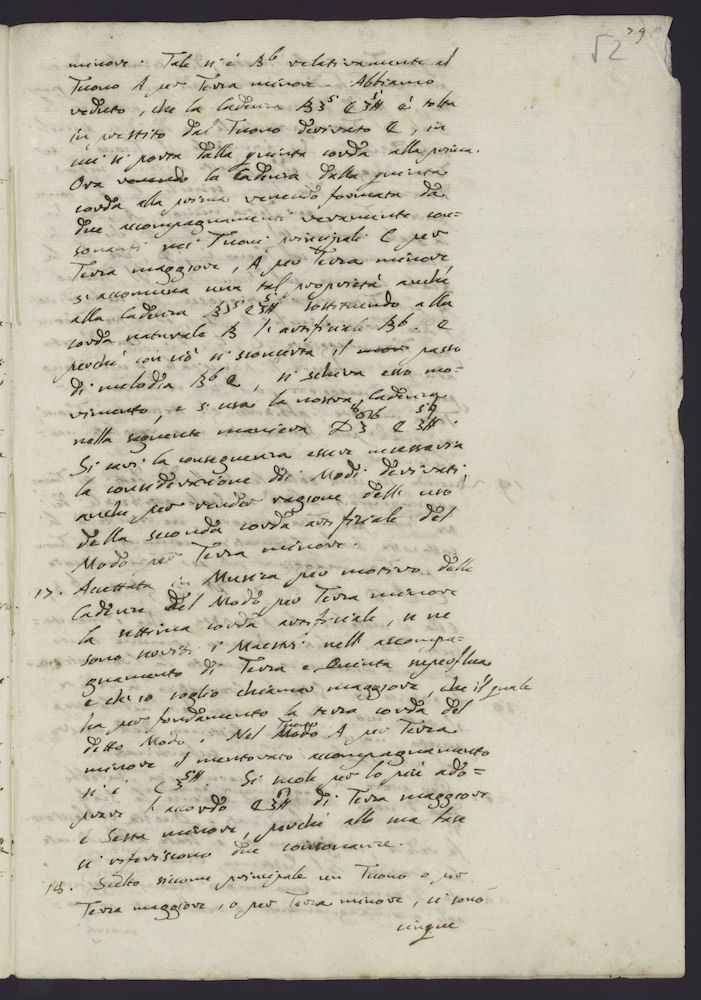 79
52
minore. Tale si è Bb relativamente al
Tuono A per Terza minore. Abbiamo
veduto, che la Cadenza B35 E3# è tolta
in prestito dal Tuono derivato E, in
cui si porta dalla quinta corda alla prima.
Ora venendo la Cadenza dalla quinta
corda alla prima venendo formata da
due accompagnamenti veramente con=
sonanti nei Tuoni principali C per
Terza maggiore, A per Terza minore
si accomuna una tal proprietà anche
alla Cadenza B35 E3# sostituendo alla
corda naturale B l'artificiale Bb. E
perché con ciò si sconcerta il passo
di melodia Bb E, si schiva esso mo=
vimento, e si usa la nostra Cadenza
nella seguente maniera D E
Si cavi la conseguenza essere necessaria
la considerazione dei Modi derivati,
anche per render ragione dell'uso
della seconda corda artifiziale del
Modo per Terza minore.
17. Accettata in Musica per motivo delle
Cadenze del Modo per Terza minore
la settima corda artifiziale, se ne
sono serviti i Maestri nell'accompa=
gnamento di Terza e Quinta superflua
e ch'io voglio chiamar maggiore, il quale
ha per fondamento la terza corda del
detto Modo. Nel Tuono A per Terza
minore il mentovato accompagnamento
si è C 5# 3. Si suole per lo più ado=
prare l'accordo E3# di Terza maggiore
e Sesta minore, perché alla sua base
si riferiscono due consonanze.
18. Scelto siccome principale un Tuono o per
Terza maggiore, o per Terza minore, vi sono
cinque